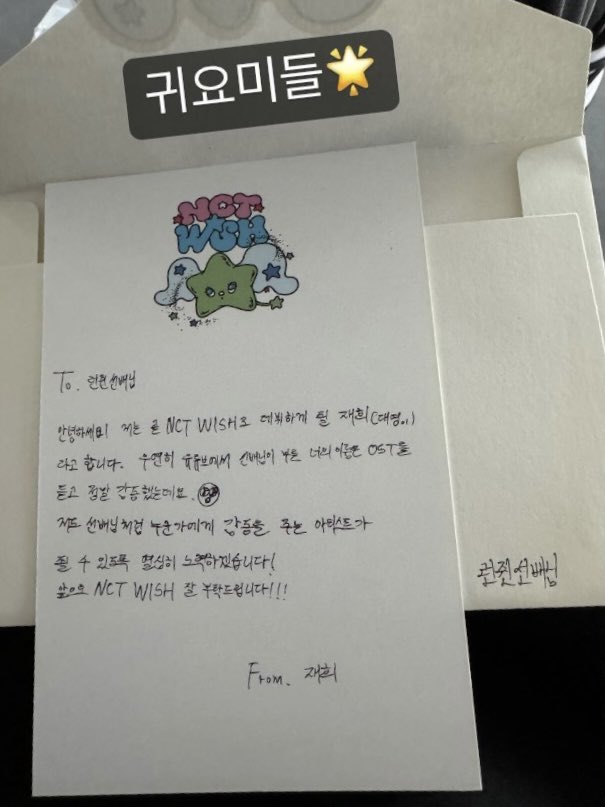 귀요미들🌟
NCT
WISH
To. 런쥔선배님
안녕하세요! 저는 곧 NCT WISH로 데뷔하게 될 재희(대영이)
라고 합니다. 우연히 유튜브에서 선배님이 부른 너의 이름은 OST를
듣고 정말 감동했는데요.
저도 선배님처럼 누군가에게 감동을 주는 아티스트가
될 수 있도록 열심히 노력하겠습니다!
앞으로 NCT WISH 잘 부탁드립니다!!!
From. 재희
런쥔선배님